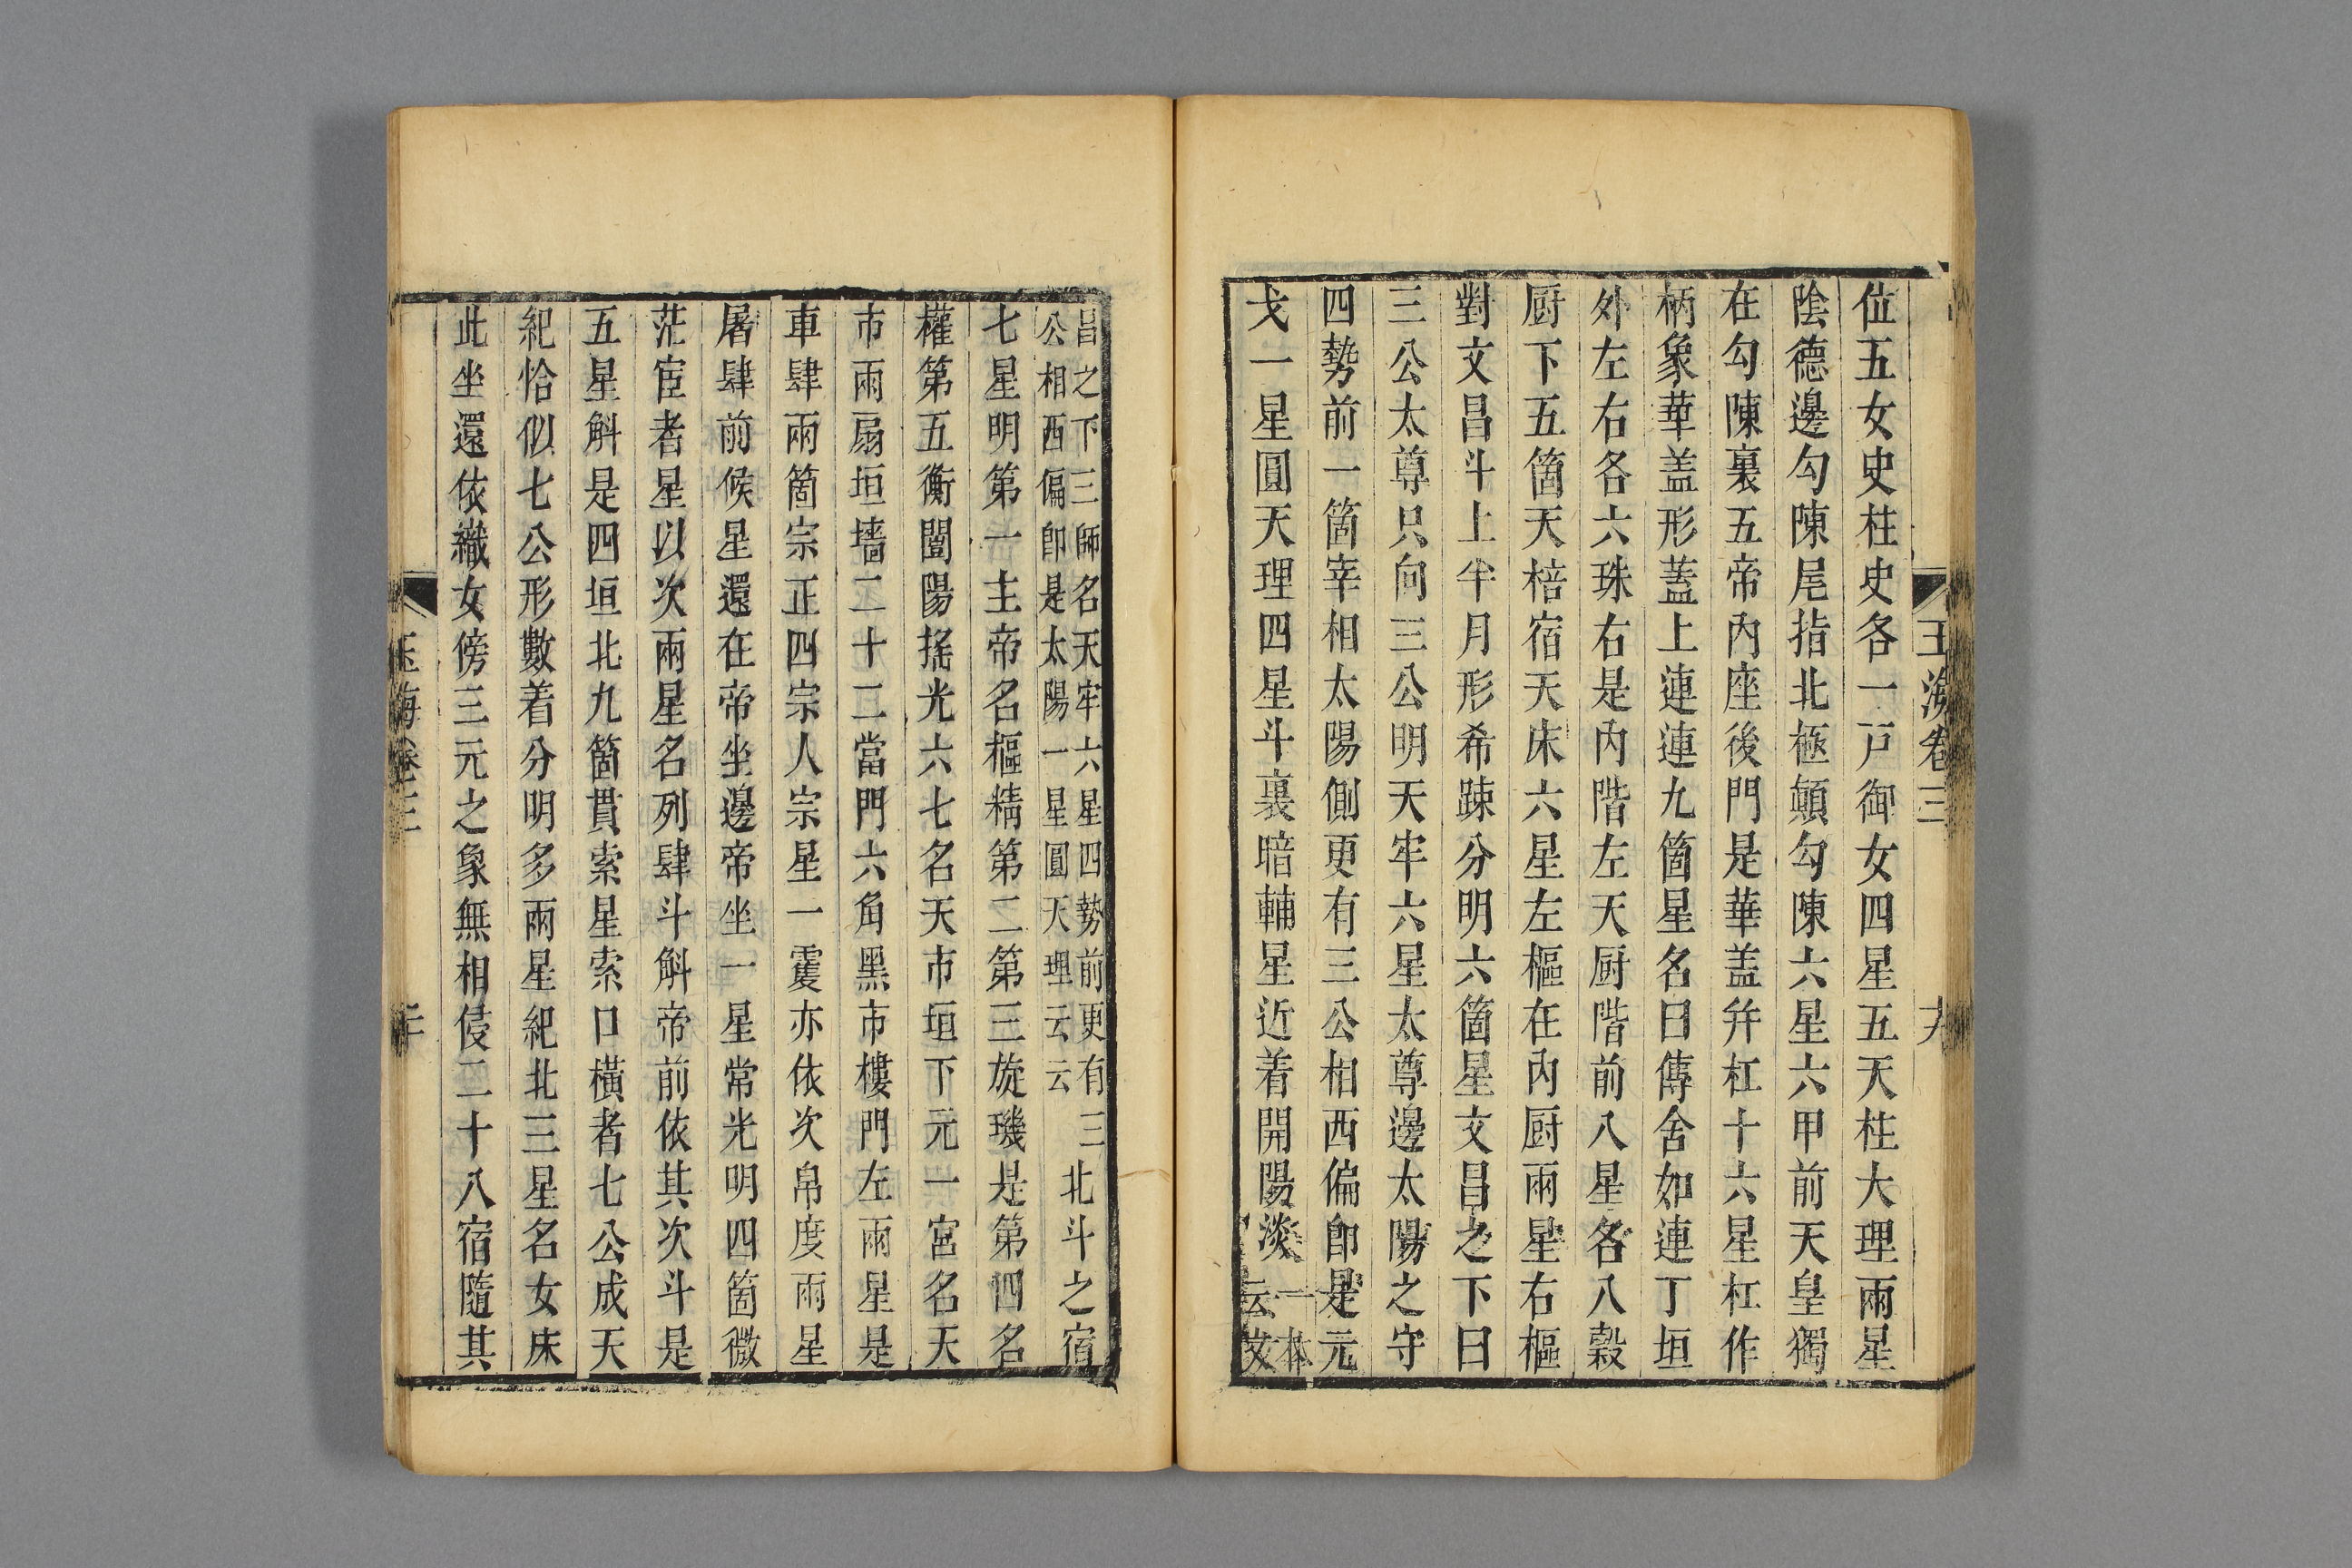 玉海卷三
十九
位五女史柱史各一戸御女四星五天柱大理兩星
陰德邊勾陳尾指北極顚勾陳六星六甲前天皇獨
在勾陳裏五帝內座後門是華盖幷杠十六星杠作
柄象華盖形蓋上連連九箇星名曰傳舍如連丁垣
外左右各六珠右是內階左天厨階前八星名八穀
厨下五箇天棓宿天床六星左樞在內厨兩星右樞
對文昌斗上半月形希踈分明六箇星文昌之下曰
三公太尊只向三公明天牢六星太尊邊太陽之守
四勢前一箇宰相太陽側更有三公相西偏卽是元
戈一星圓天理四星斗裏暗輔星近着開陽淡一本
云文
昌之下三師名天牢六星四勢前更有三
公相西偏卽是太陽一星圓天理云云
北斗之宿
七星明第一主帝名樞精第二第三旋璣是第四名
權第五衡闓陽搖光六七名天市垣下元一宮名天
市兩扇垣墻二十二當門六角黑市樓門左兩星是
車肆兩箇宗正四宗人宗星一䨇亦依次帛度兩星
屠肆前候星還在帝坐邊帝坐一星常光明四箇微
茫宦者星以次兩星名列肆斗斛帝前依其次斗是
五星斛是四垣北九箇貫索星索口橫者七公成天
紀恰似七公形數着分明多兩星紀北三星名女床
此坐還依織女傍三元之象無相侵二十八宿隨其
玉海卷三
二十